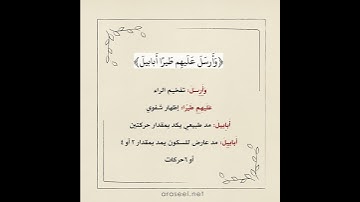 ﴿وَأَرسَلَ عَلَيهِم طَيرًا أَبابيلَ﴾
وأرسل: تفخيم الراء
عليهم طيرا: إظهار شفوي
أبابيل: مد طبيعي يمد بمقدار حركتين
أبابيل: مد عارض للسكون يمد بمقدار ٢ أو ٤
أو ٦ حركات
araseel.net